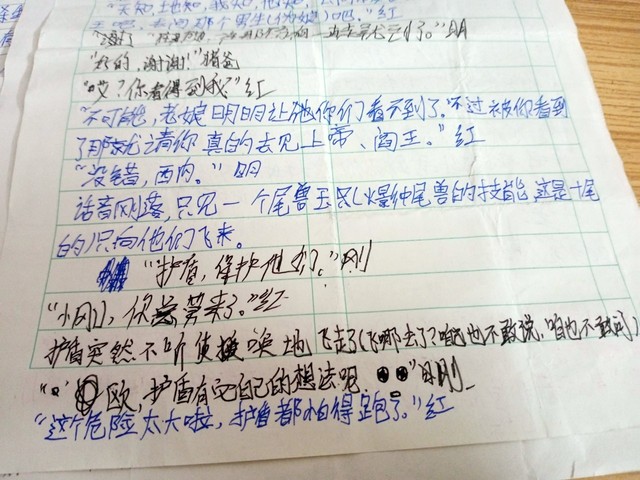 "天知,地知,我知,他知,
去问那个男生(伪娘)吧。"红
"谢了
"好的,谢谢!"猪爸
"哎?你看得到我?"红
"不可能,老娘明明让他你们看不到了。"不过被你看到
了那就请你真的去见上帝、阎王。"红
"没错,西内。"明
话音刚落,只见一个尾兽玉(火爆种尾兽的技能,这是十尾
的)只向他们飞来。
"护盾,保护他们。"刚
"小刚,你带来了。"红
护盾突然不听使唤地飞走了(飞哪去了?咱也不敢说,咱也不敢问)
"欧,护盾有它自己的想法呢"明刚
"这个危险太大啦,护盾都怕得跑了。"红